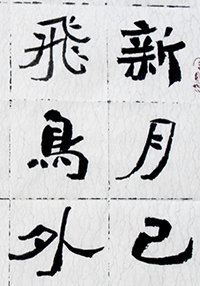 新月已
飛鳥外